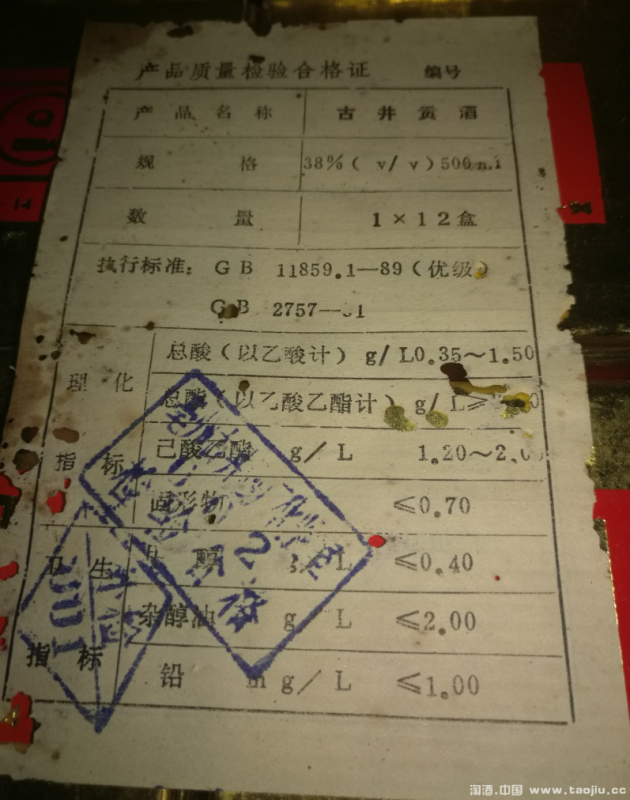 产品质量检验合格证 编号
产品名称 古井贡酒
规格 38%( v/ v)500m.l
数量 1×12盒
执行标准: GB 11859.1—89(优级)
GB 2757—
理化指标
总酸(以乙酸计) g/L0.35~1.50
总酯(以乙酸乙酯计) g/L≥
己酸乙酯 g/L 1.20~2.
固形物 ≤0.70
卫生指标
g/L ≤0.40
杂醇油 g/L ≤2.00
铅 mg/L ≤1.00
淘酒.中国 www.taojiu.cc